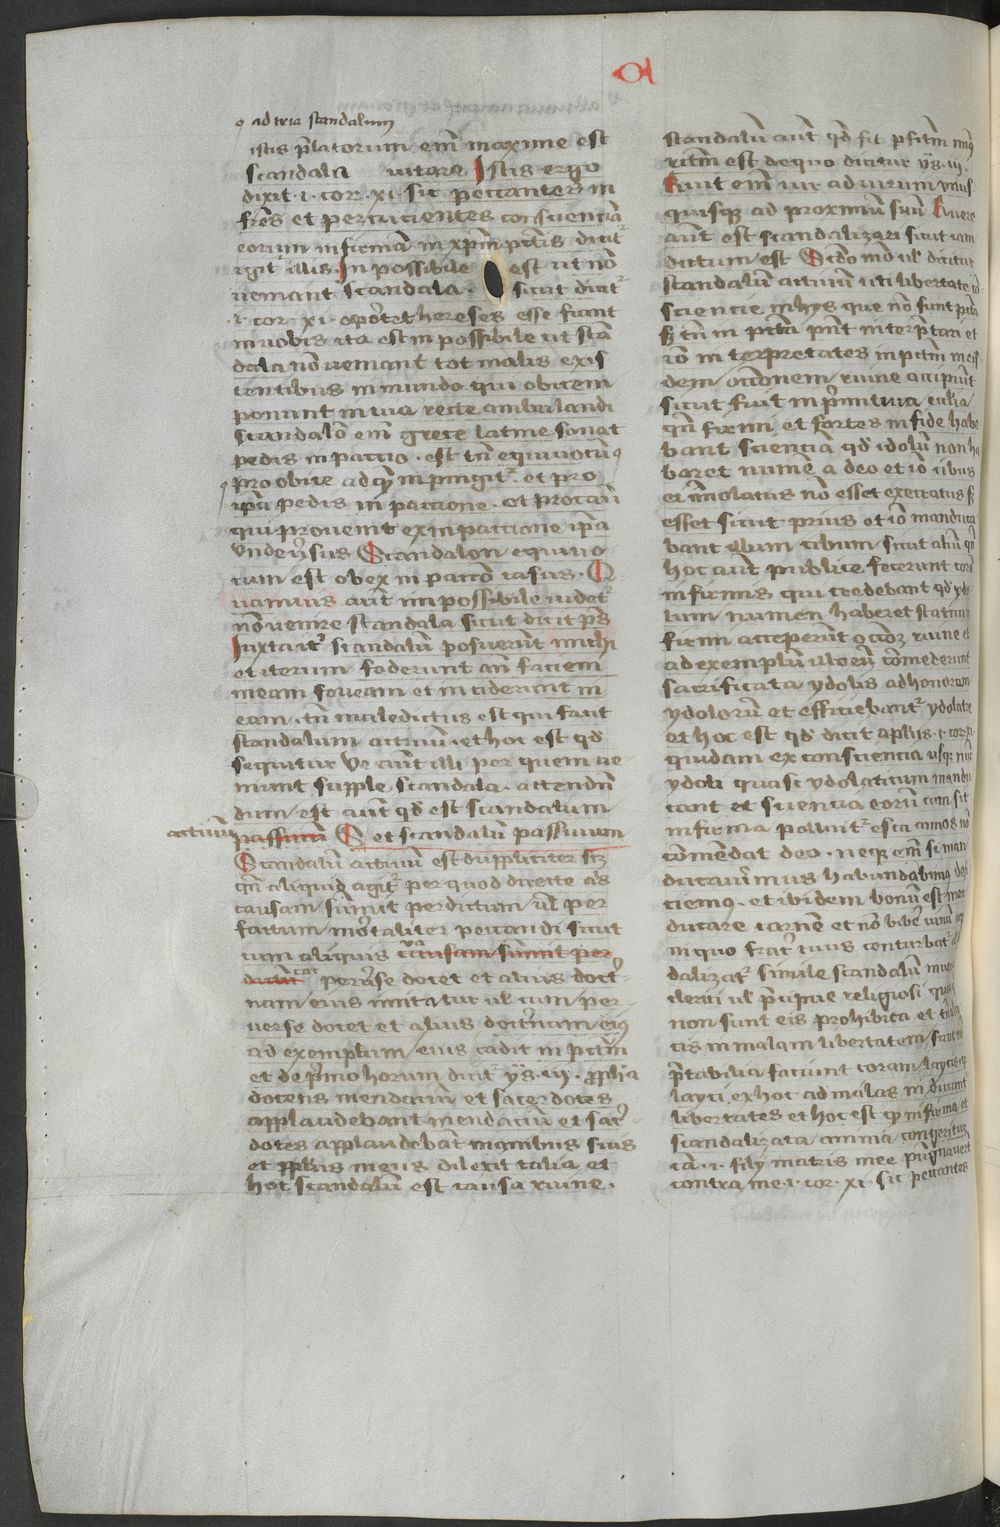 ad tria scandalum
istis p̄latorum em̄ maxime est
scandala vitare Istis ergo
dixit .i. cor. xi. sic peccantes in
fr̄es et percucientes conscienciā
eorum infirmā in xp̄m p̄ctis dicit᷑
igit᷑ illis. In possibile est ut nō
veniant scandala. sicut dicit᷑
.i. cor xi. oportet hereses esse fiant
in vobis ita est in possibile ut scā
dala nō veniant tot malis exis
tentibus in mundo qui obicem
ponunt in via recte ambulandi
Scandalō em̄ grece latine sonat
pedis in paccio . est tn̄ equivocū
pro obice ad qm̄ inpingit᷑. et pro
ip̄a pedis in paccione . et pro casu
qui provenit ex in paccione ip̄a
Vnde v̄sus Scandalon equivo
cum est obex in paccō casus . Q
uamvis aūt impossibile videt᷑
nō venire scandala sicut dicit p̄s
Iuxta it᷑ scandalū posuerūt michi
et iterum foderunt an̄ faciem
meam foveam et inciderunt in
eam . tn̄ maledictus est qui facit
scandalum activū . et hoc est qd̄
sequitur Ve aūt illi per quem ve
niunt supple scandala . attendn̄
dum est aūt qd̄ est scandalum
activū passivū et scandalū passivum
Scandalū activū est duppliciter s͛z
qn̄ aliquid agit᷑ per quod directe a͛s
causam sumit per dictum v͛l per
factum mortaliter peccandi sicut
cum aliquis causam sumit per
dictū perv͛se docet et alius doct᷑
nam eius imitatur ul cum per
verse docet et alius doctrinam ei9
ad exemplum eius cadit in p̄ctm̄
et de primo horum dicit᷑ ys. iij. p̄ph̄a
docetis mendaciū et sacerdotes
applaudebant mendaciū et sac͛
dotes applaudebāt manibus suis
et pp̄lus meus dilexit talia et
hoc scandalū est causa ruine .
scandalū aūt qd̄ fit
ritm̄ est de quo dicitur ys. iij.
Ruit em̄ vir ad virum vnus
quisq3 ad proximū suū Ruere
aūt est scandalizari sicut iam
dictum est Scd̄o mō ul dicitur
scandalū activum uti libertate cō
sciencie in hys que nō sunt p̄cta
s͛ tn̄ in p̄ctū pn̄t interp̄tari et
iō interpretates in p̄ctm̄ in eis
dem occōnem ruine accipiūt
sicut fuit in p̄mitiva ecc͛lia
qn̄ firmi et fortes in fide habe
bant scienciā qd̄ idolū non ha
beret numē a deo et iō cibus
ei īmolatus nō esset execratus s͛
esset sicut prius et iō manduca
bant illum cibum sicut aliū qn̄
hoc aūt publice fecerunt corā
infirmis qui credebant qd̄ ydo
lum numen haberet statim in
firmi acceperūt occōm ruine et
ad exemplū illorū cōmederunt
sacrificata ydolis ad honorem
ydolorū et efficiebant᷑ ydolatre
et hoc est qd̄ dicit aplūs .i. cor.
quidam ex consciencia usq3 nūc
ydoli quasi ydolaticum mandu
cant et sciencia eorū cum sit
infirma polluit᷑ esca aū nos nō
cōmendat deo . neq3 em̄ si man
ducaverimus habundabimus defi
ciemus . et ibidem bonū est man
ducare carnē et nō bibe͛ vinū
in quo frat͛ tuus conturbat᷑
dalizat᷑ simile scandalū
clerici ul p̄cipue religiosi
non sunt eis prohibita et
tis in malam libertatem
p̄tabilia faciunt coram laycis
layci ex hoc ad malas inducunt᷑
libertates et hoc est qd̄ infirma et
scandalizata anima conqueritur
cā. i. filij matris mee pugnaverūt
contra me .i. cor. xi. sic peccantes